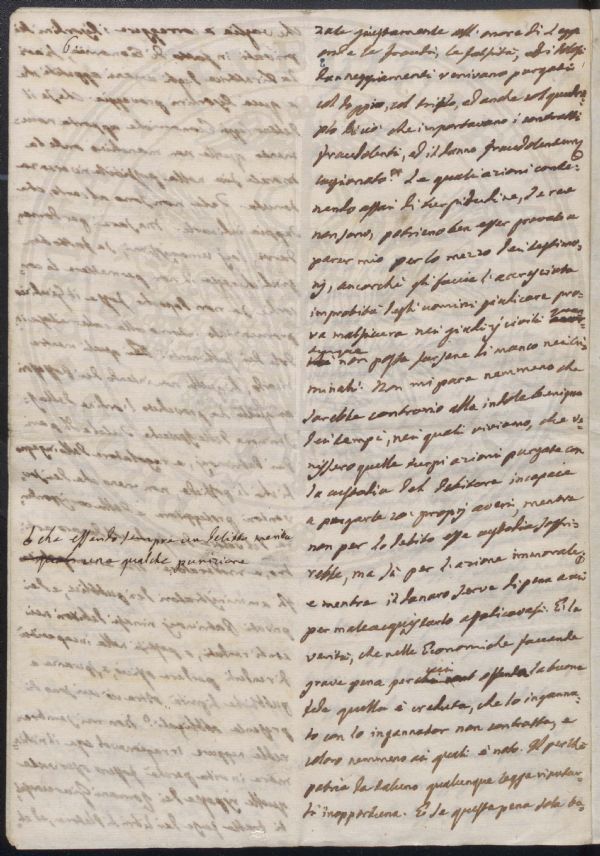 zate giustamente all'onore di Legge
onde le fraudi, le falsità, ed i dolosi
danneggiamenti venivano purgati
col doppio, col triplo, ed anche col quadru-
plo di ciò che importavano i contratti
fraudolenti, ed il danno fraudolentem.te
cagionato. Le quali azioni conte-
nendo assai di turpitudine, se rae
non sono, potrieno ben esser provate a
parer mio per lo mezzo dei testimo-
nj, ancorchè gli faccia l'accresciuta
improbità degli uomini giudicare pro-
va malsicura nei giudizj civili
non possa farsene di manco nei cri-
minali. Non mi pare nemmeno che
sarebbe contrario alla indole benigna
dei tempi, nei quali viviamo, che ve-
nissero quelle turpi azioni purgate con
la custodia del debitore incapace
a purgarle co' proprj averi, mentre
non per lo debito essa custodia soffri-
rebbe, ma sì per l'azione immorale
e mentre il danaro serve di pena a chi
per male acquistarlo affaticavasi. E la
verità, che nelle Economiche faccende
grave pena per chi offenda la buona
fede quella è creduta, che lo inganna-
to con lo ingannator non contratta, e
coloro nemmeno ai quali è noto. Il perchè
potria da taluno qualunque legge riputar-
si inopportuna. E se questa pena sola ba-
che essendo sempre un delitto merita
una qualche punizione